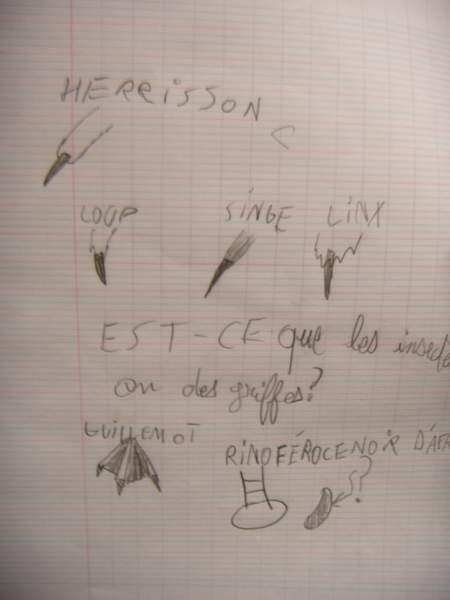 HERRISSON
LOUP SINGE LINX
EST-CE que les insecte
on des griffes?
GUILLEMOT
RINOFÉROCENOIR D'AFR
?